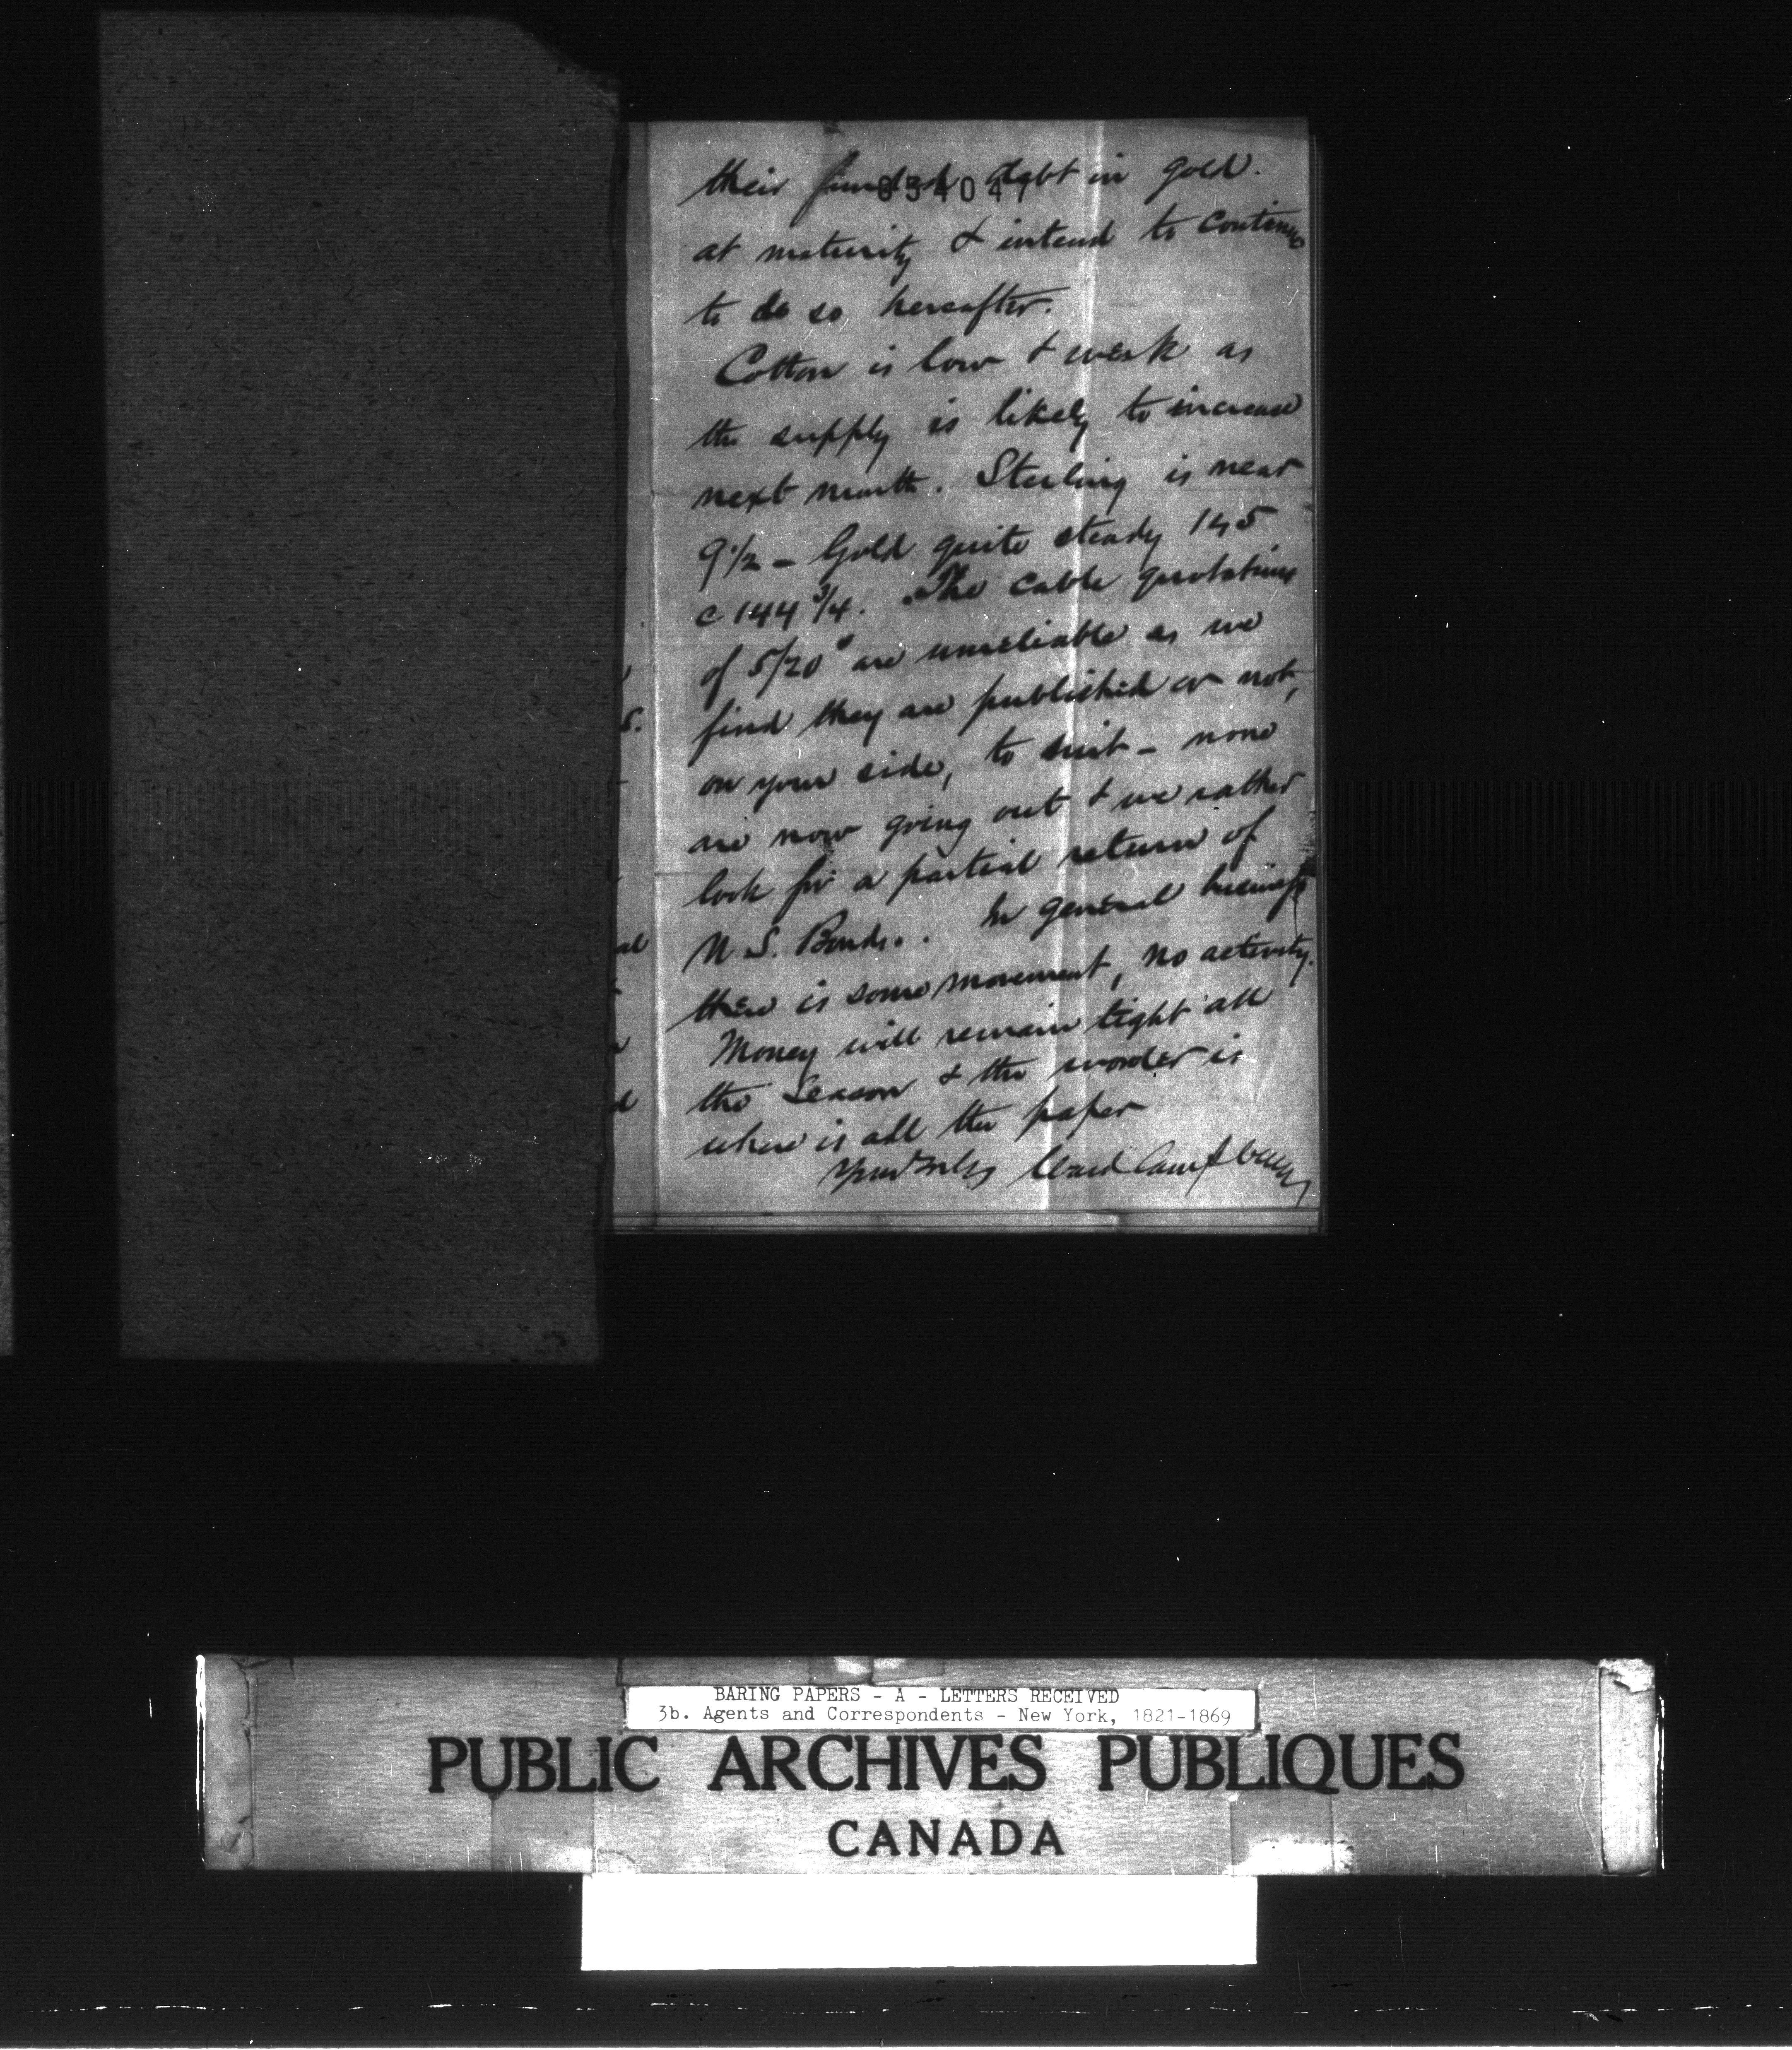 their funded debt in gold.
at maturity & intend to continue
to do so hereafter.
Cotton is low & weak as
the supply is likely to increase
next month. Sterling is near
9 1/2 - Gold quite steady 145
c 144 3/4. The cable quotations
of 5/20s are unreliable as we
find they are published or not,
on your side, to suit - none
are now going out & we rather
look for a partial return of
U.S. Bonds. In general business
there is some movement, no activity.
Money will remain tight all
the Season & the wonder is
where is all the paper
Ward Campbell
s.
al
d
BARING PAPERS - A - LETTERS RECEIVED
3b. Agents and Correspondents - New York, 1821-1869
PUBLIC ARCHIVES PUBLIQUES
CANADA